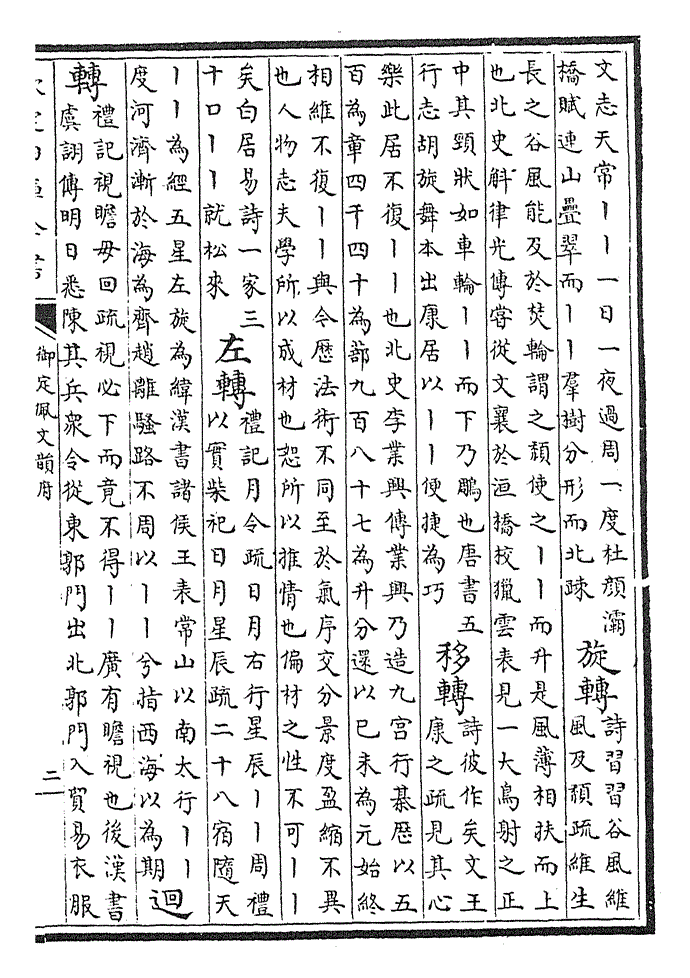 文志天常丨丨一日一夜過周一度杜顔灞
橋賦連山疊翠而丨丨羣樹分形而北疎
旋轉
詩習習谷風維
風及頽疏維生
長之谷風能及於焚輪謂之頽使之丨丨而升是風薄相扶而上
也北史斛律光傳嘗從文襄於洹橋校獵雲表見一大鳥射之正
中其頸狀如車輪丨丨而下乃鵰也唐書五
行志胡旋舞本出康居以丨丨便捷為巧
移轉
詩彼作矣文王
康之疏見其心
樂此居不復丨丨也北史李業興傳業興乃造九宫行棊歴以五
百為章四千四十為蔀九百八十七為升分還以已未為元始終
相維不復丨丨與今歴法術不同至於氣序交分景度盈縮不異
也人物志夫學所以成材也恕所以推情也偏材之性不可丨丨
矣白居易詩一家三
十口丨丨就松來
左轉
禮記月令疏日月右行星辰丨丨周禮
以實柴祀日月星辰疏二十八宿隨天
丨丨為經五星左旋為緯漢書諸侯王表常山以南太行丨丨
度河濟漸於海為齊趙離騷路不周以丨丨兮指西海以為期
迴
轉
禮記視瞻毋回疏視必下而竟不得丨丨廣有瞻視也後漢書
虞詡傳明日悉陳其兵衆令從東郭門出北郭門入貿易衣服
欽定四庫全書
御定佩文韻府
二